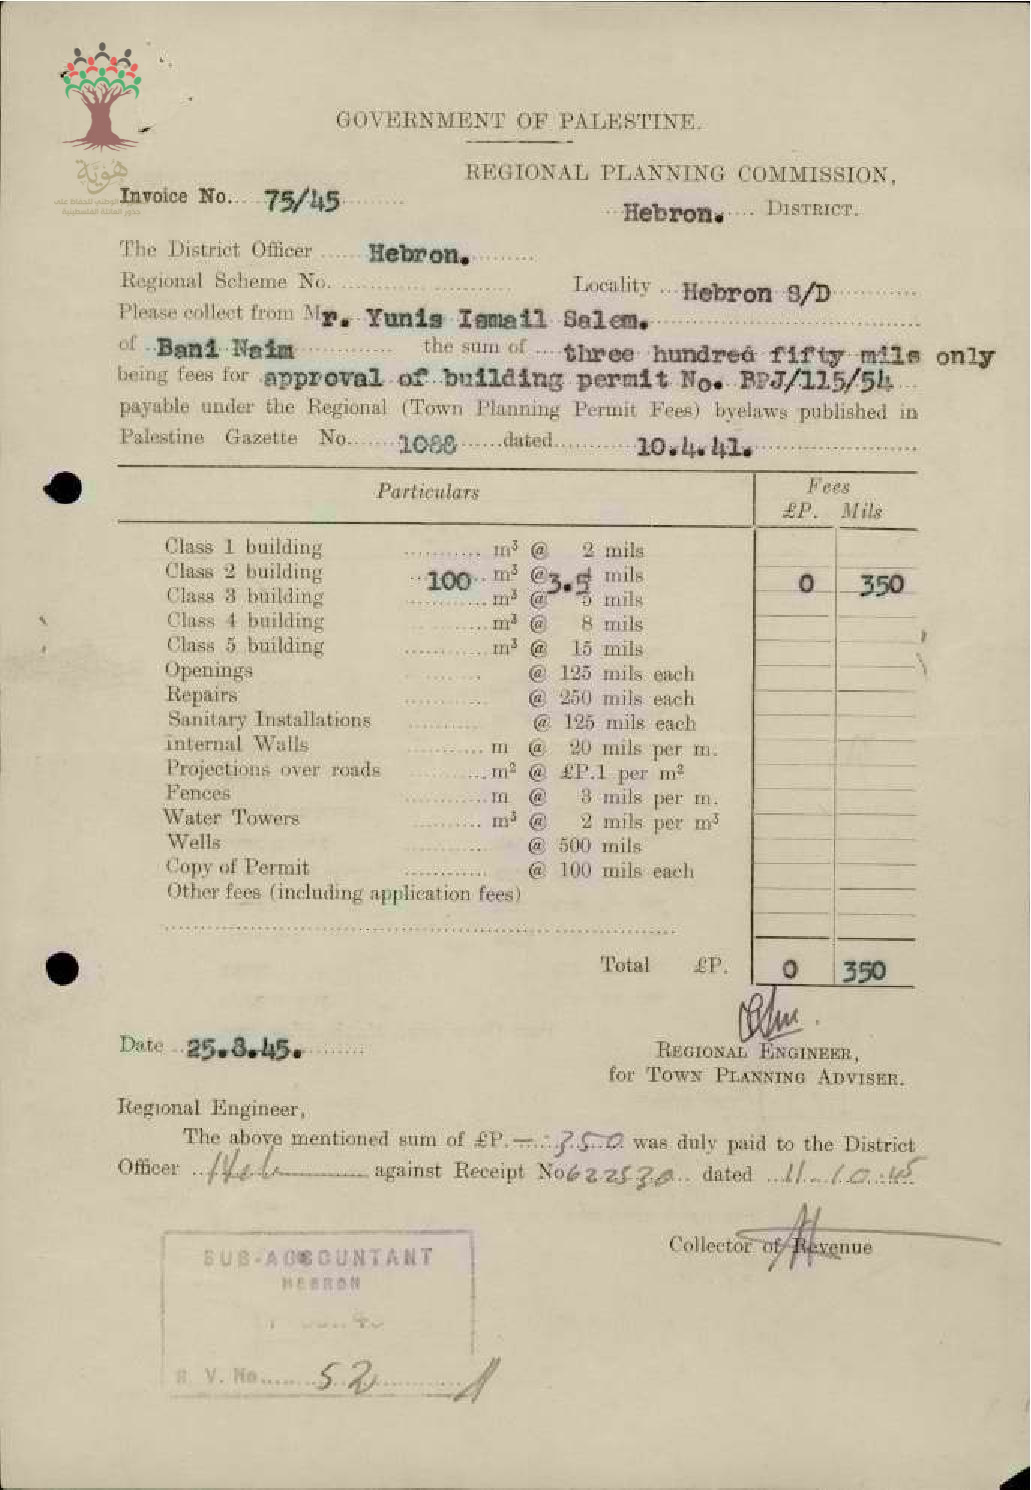 هوية
GOVERNMENT OF PALESTINE.
REGIONAL PLANNING COMMISSION,
Invoice No. 75/45
Hebron. DISTRICT.
The District Officer Hebron.
Regional Scheme No. Locality Hebron S/D
Please collect from Mr. Yunis Ismail Salem.
of Bani Naim the sum of three hundred fifty mils only
being fees for approval of building permit No. BPJ/115/54
payable under the Regional (Town Planning Permit Fees) byelaws published in
Palestine Gazette No. 1088 dated 10.4.41.
Particulars Fees
£P. Mils
Class 1 building m³ @ 2 mils
Class 2 building 100 m³ @ 3.5 mils 0 350
Class 3 building m³ @ 5 mils
Class 4 building m³ @ 8 mils
Class 5 building m³ @ 15 mils
Openings @ 125 mils each
Repairs @ 250 mils each
Sanitary Installations @ 125 mils each
Internal Walls m @ 20 mils per m.
Projections over roads m² @ £P.1 per m²
Fences m @ 3 mils per m.
Water Towers m³ @ 2 mils per m³
Wells @ 500 mils
Copy of Permit @ 100 mils each
Other fees (including application fees)
Total £P. 0 350
Date 25.8.45.
REGIONAL ENGINEER,
for TOWN PLANNING ADVISER.
Regional Engineer,
The above mentioned sum of £P. —.350 was duly paid to the District
Officer Heb against Receipt No 622530 dated 11.10.45
Collector of Revenue
SUB-ACCOUNTANT
HEBRON
R. V. No. 52